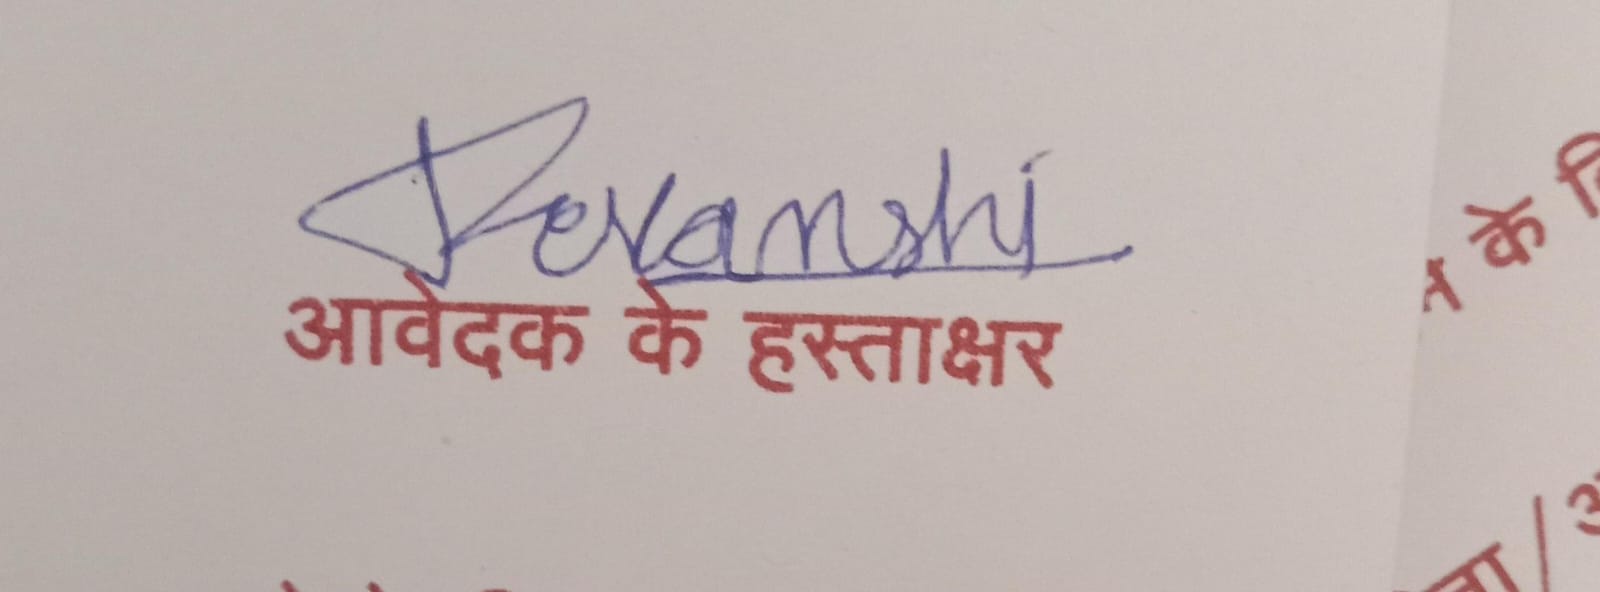 Devanshi
आवेदक के हस्ताक्षर
के